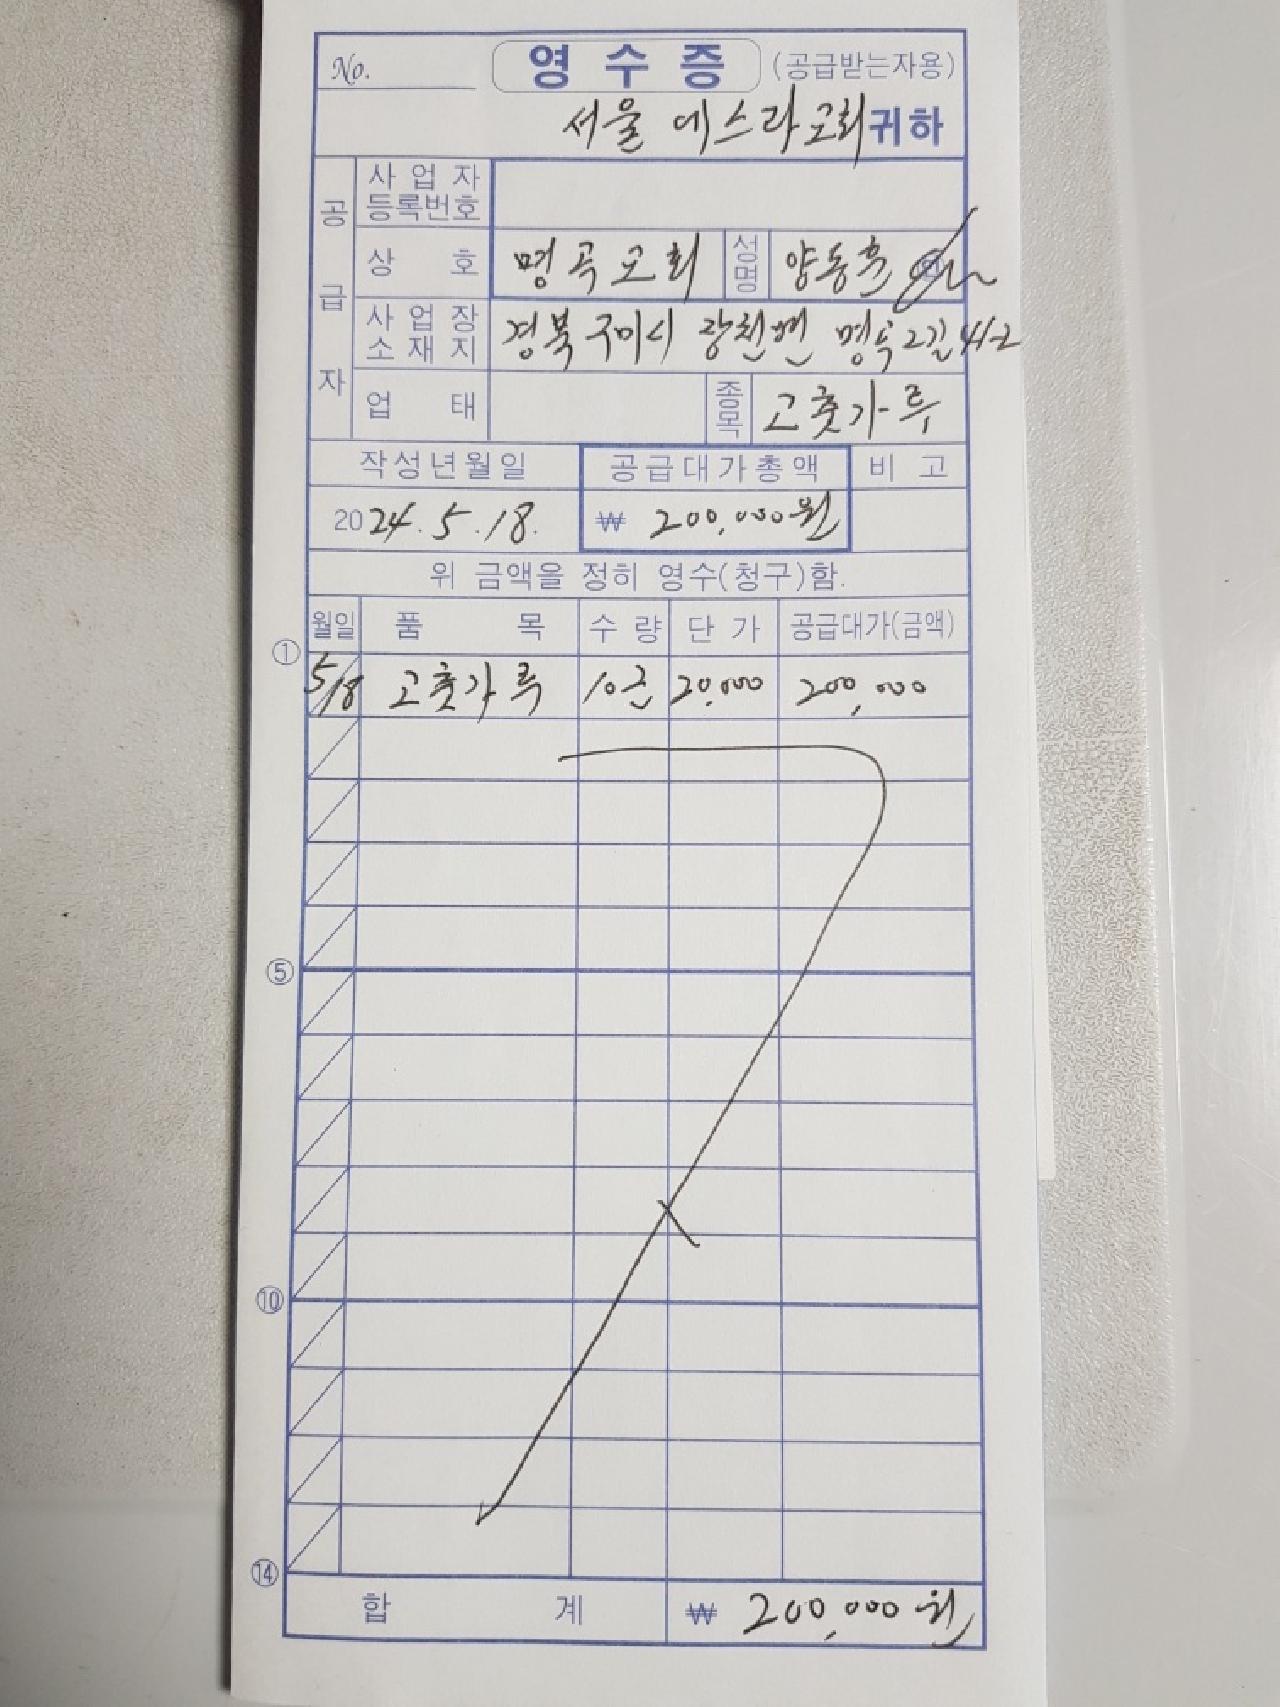 No.
영 수 증 (공급받는자용)
서울 에스라교회 귀하
공급자
사업자등록번호
상 호 명곡교회 성명 양동훈
사업장소재지 경북 구미시 장천면 명곡2길 41-2
업 태 종목 고춧가루
작성년월일 공급대가총액 비 고
2024.5.18. ₩ 200,000원
위 금액을 정히 영수(청구)함.
월일 품 목 수 량 단 가 공급대가(금액)
①
5/18 고춧가루 10근 20,000 200,000
⑤
⑩
⑭
합 계 ₩ 200,000원